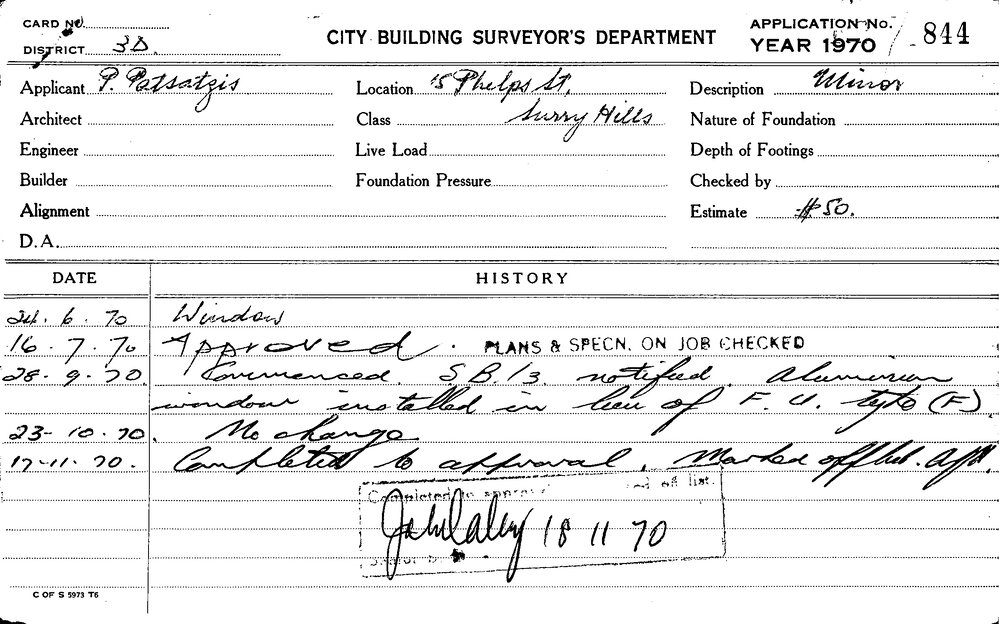 CARD No.
CITY BUILDING SURVEYOR'S DEPARTMENT
APPLICATION No.
DISTRICT 3D.
YEAR 1970 / 844
Applicant P. Patsatzis
Location 15 Phelps St,
Description Minor
Architect
Class Surry Hills
Nature of Foundation
Engineer
Live Load
Depth of Footings
Builder
Foundation Pressure
Checked by
Alignment
Estimate $50.
D.A.
DATE HISTORY
24. 6. 70 Window
16. 7. 70 Approved. PLANS & SPECN. ON JOB CHECKED
28. 9. 70. Commenced. S.B./3 notified. Aluminium
window installed in lieu of F. U. type (F).
23-10.70. No change
17-11.70. Completed to approval. Marked off list.
Completed to approval off list.
John Daley 18 11 70
C OF S 5973 T6